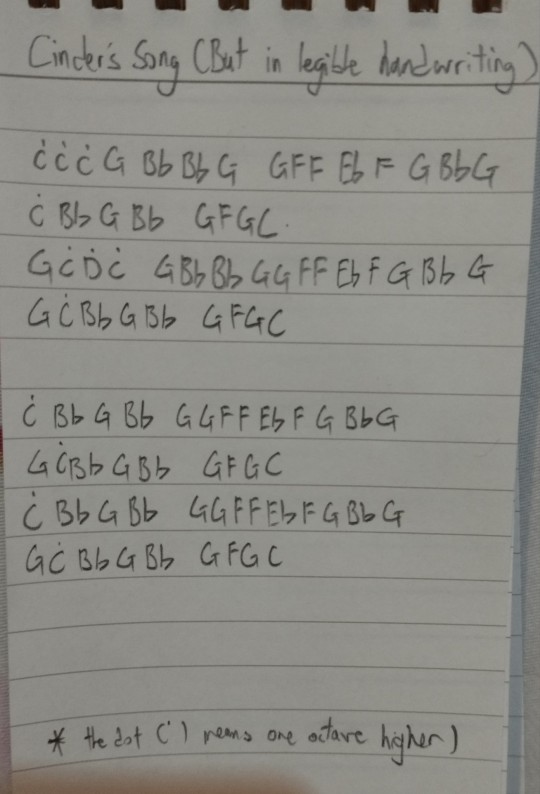 Cinder's Song (But in legible handwriting)
Ċ Ċ Ċ G Bb Bb G GFF Eb F G Bb G
Ċ Bb G Bb GFGC.
G Ċ Ḋ Ċ G Bb Bb G G FF Eb F G Bb G
G Ċ Bb G Bb GFGC
Ċ Bb G Bb G G F F Eb F G Bb G
G Ċ Bb G Bb GFGC
Ċ Bb G Bb G G F F Eb F G Bb G
G Ċ Bb G Bb GFGC
* the dot (˙) means one octave higher)